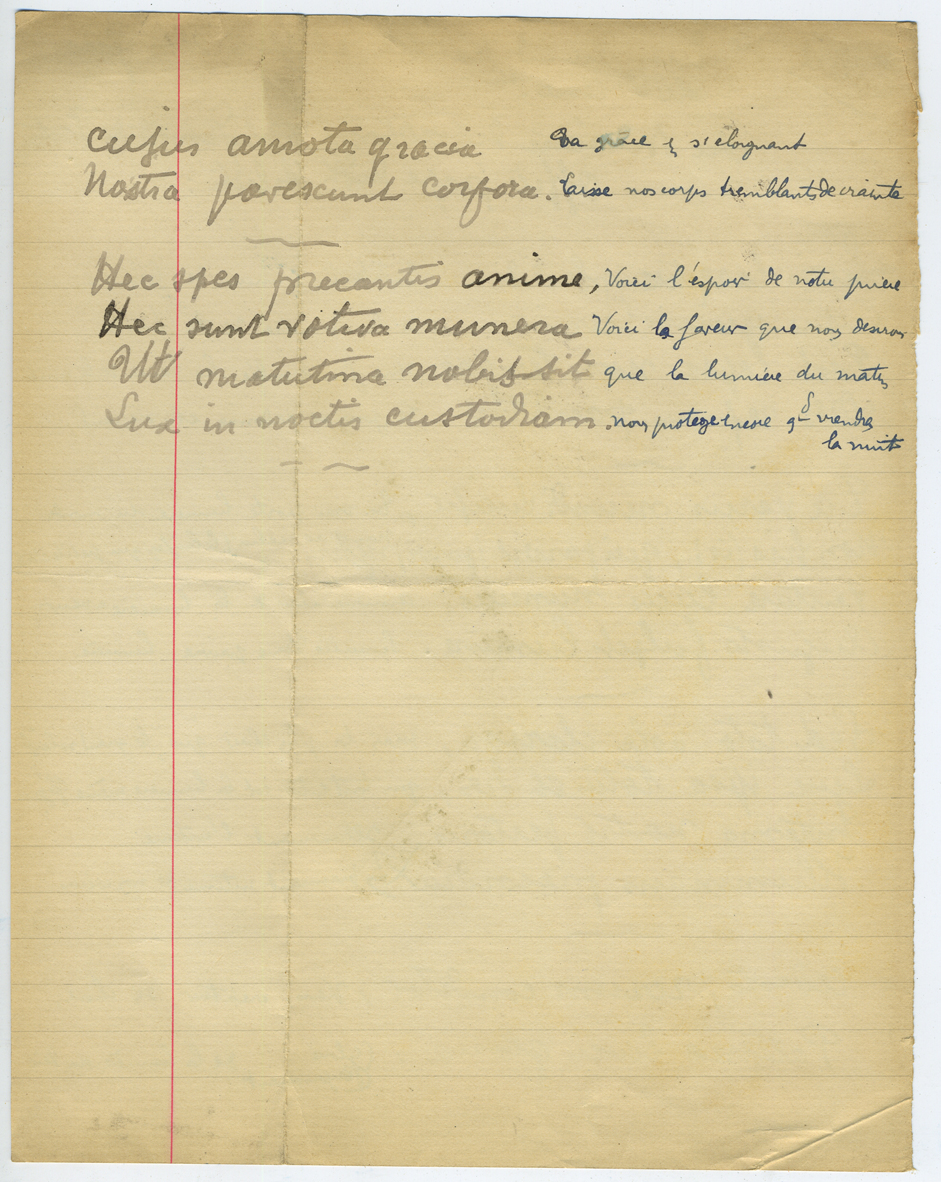 Cujus amota gracia Ta grâce en s'éloignant
Nostra pavescunt corpora. Laisse nos corps tremblants de crainte
Hec spes precantis anime, Voici l'espoir de notre prière
Hec sunt votiva munera Voici la faveur que nous desirons
Ut matutina nobis sit que la lumière du matin
Lux in noctis custodiam. nous protege encore qd viendra
la nuit